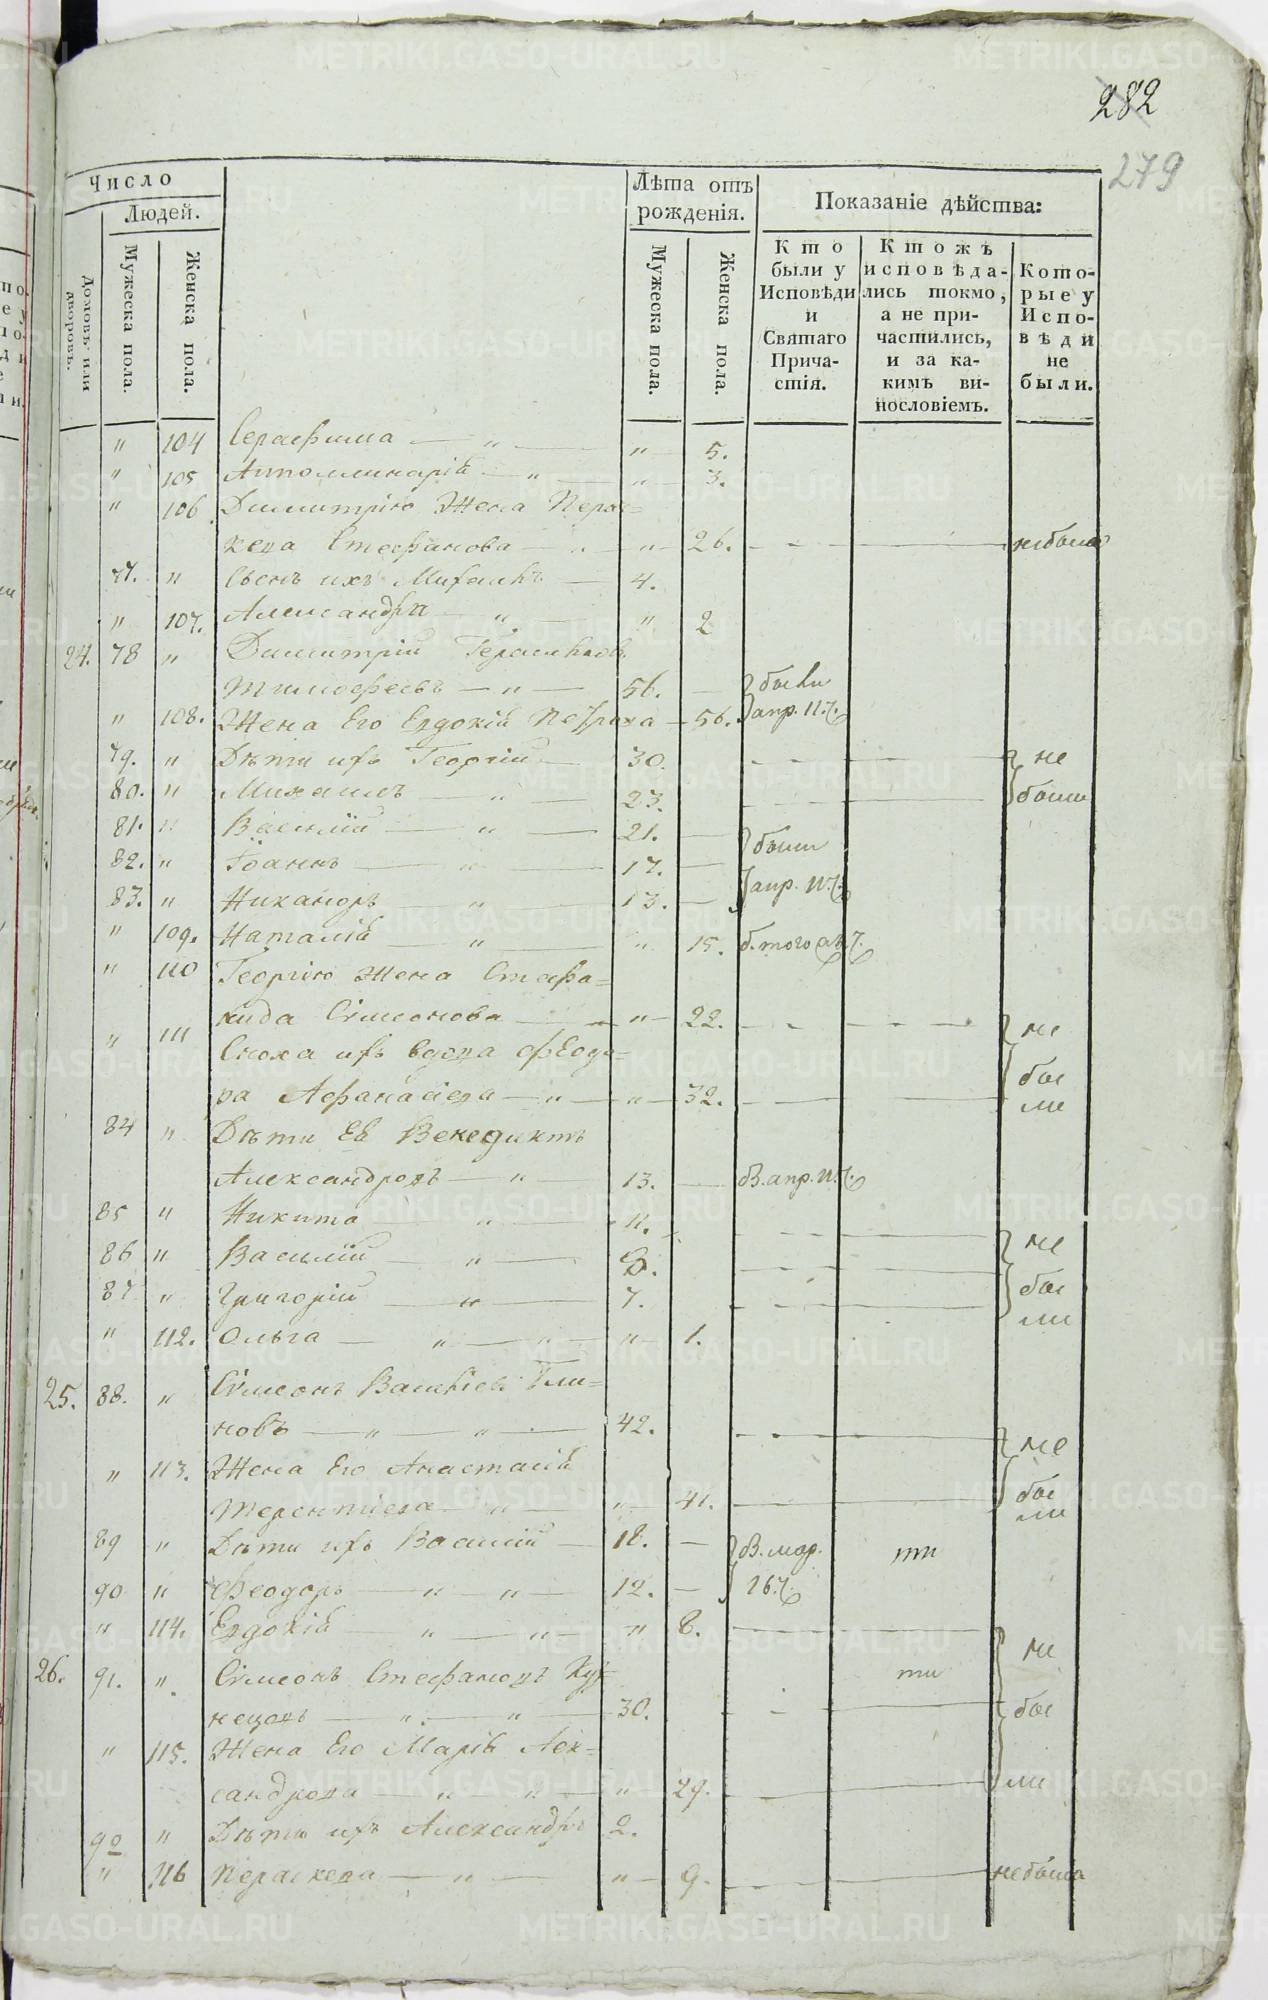 282
279
Число
Людей.
Домовъ или дворовъ.
Мужеска пола.
Женска пола.
Лѣта отъ рожденія.
Мужеска пола.
Женска пола.
Показаніе дѣйства:
Кто были у Исповѣди и Святаго Причастія.
Ктожъ исповѣдались токмо, а не причастились, и за какимъ винословіемъ.
Которые у Исповѣди не были.
" 104 Серафима — " — " — 5.
" 105 Апполлинарія — " — " — 3.
" 106 Димитрію Жена Парас=
кева Стефанова — " — 26. не была
77. " Сынъ ихъ Михаилъ — 4.
" 107. Александра — " — " 2
24. 78 " Димитрій Герасимовъ
Тимофеевъ — " — 56. — были
" 108. Жена Его Евдокія Петрова — 56. апр. 11. ч.
79. " Дѣти ихъ Георгій — 30. не
80. " Михаилъ — " — 23. были
81. " Василій — " — 21. — были
82. " Іоаннъ — " — 17. —
83. " Никаноръ — " — 13. — апр. 11. ч.
" 109. Наталія — " — " 15. б. того ап. ч.
" 110 Георгію Жена Стефа=
нида Сімеонова — " — 22. не
" 111 Сноха ихъ вдова Феодо=
ра Афанасіева — " — " — 32. бы
ли
84 " Дѣти Ея Венедиктъ
Александровъ — " — 13. — б. апр. 11. ч.
85 " Никита — " — 11.
86 " Василій — " — 9. не
87 " Григорій — " — 7. бы
ли
" 112. Ольга — " — " — " — 1.
25. 88. " Сімеонъ Васильевъ Бли=
новъ — " — " — 42. не
" 113. Жена Его Анастасія
Терентіева — " — " — 41. бы
ли
89 " Дѣти ихъ Василій — 18. — б. мар.
90 " Феодоръ — " — " — 12. — 26. ч.
" 114. Евдокія — " — " — " 8.
26. 91. " Сімеонъ Стефановъ Куз= не
нецовъ — " — " — 30. бы
" 115. Жена Его Марія Алек=
сандрова — " — " — " 29. ли
92 " Дѣти ихъ Александръ 2.
" 116 Параскева — " — " — 9. не была
METRIKI.GASO-URAL.RU